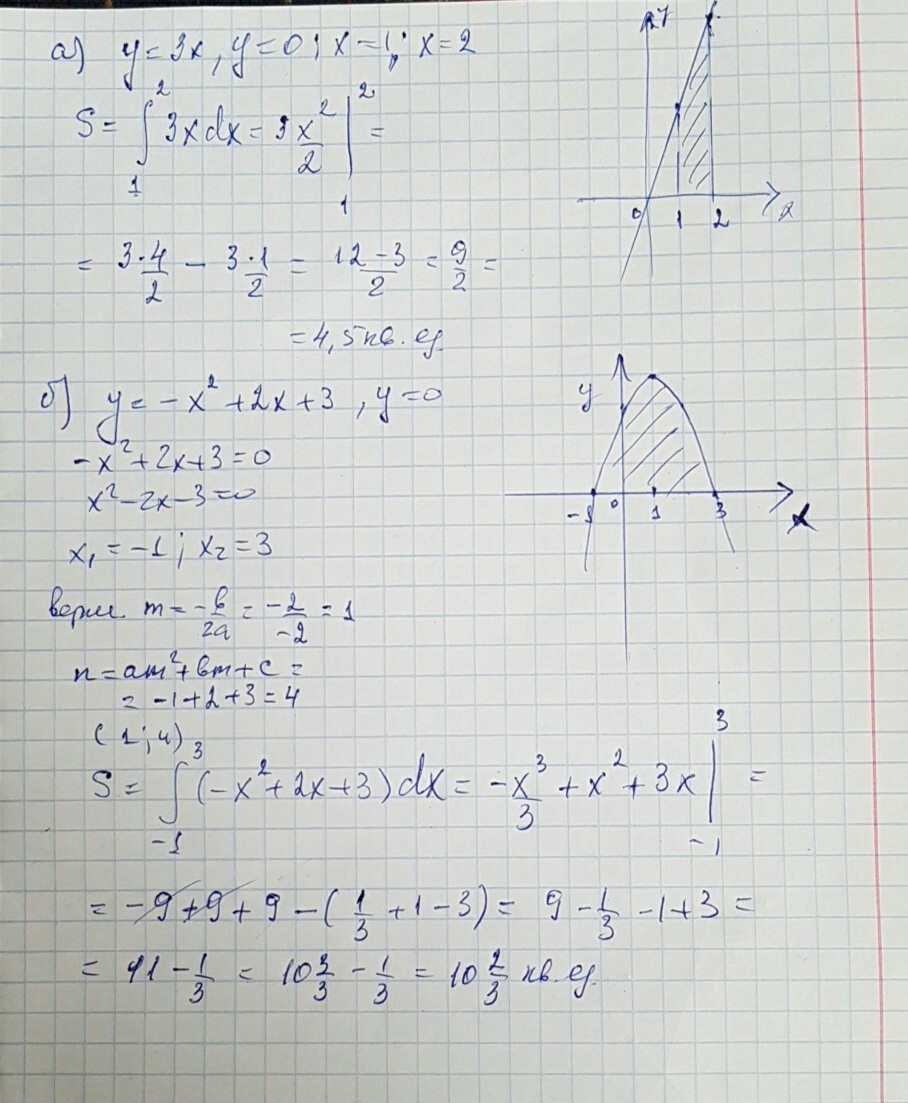 а) y = 3x, y = 0; x = 1; x = 2
y
S = ∫₁² 3x dx = 3x²/2 |₁² =
0 1 2 x
= 3·4/2 − 3·1/2 = 12−3/2 = 9/2 =
= 4,5 кв. ед
б) y = −x² + 2x + 3, y = 0
y
−x² + 2x + 3 = 0
x² − 2x − 3 = 0
−1 0 1 3 x
x₁ = −1; x₂ = 3
верш. m = −b/2a = −2/−2 = 1
n = am² + bm + c =
= −1 + 2 + 3 = 4
(1; 4)
S = ∫₋₁³ (−x² + 2x + 3) dx = −x³/3 + x² + 3x |₋₁³ =
= −9 + 9 + 9 − (1/3 + 1 − 3) = 9 − 1/3 − 1 + 3 =
= 11 − 1/3 = 10 3/3 − 1/3 = 10 2/3 кв. ед.